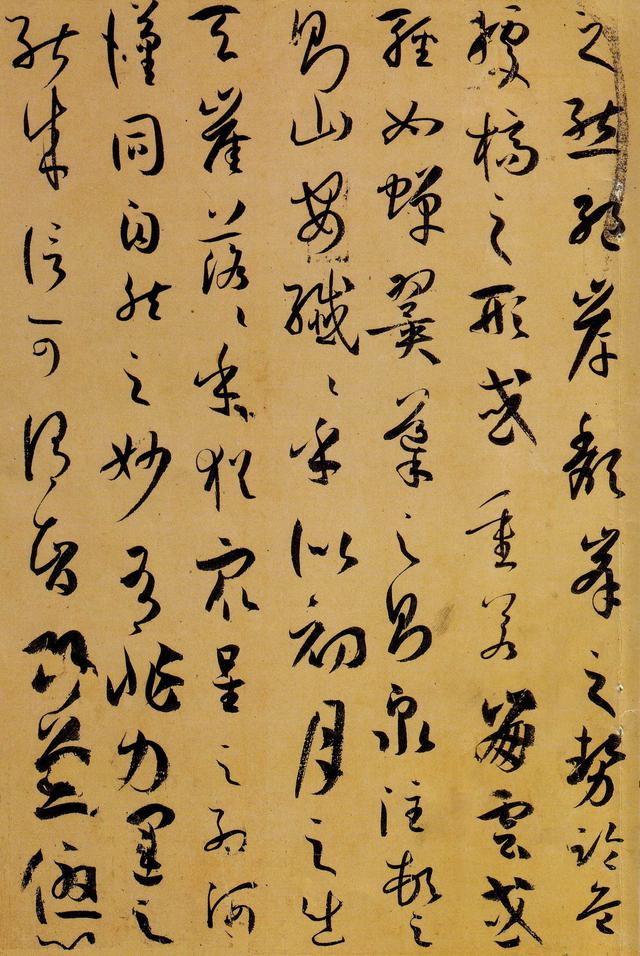 之態絕岸頹峰之勢臨危
據槁之形或重若崩雲或
輕如蟬翼導之則泉注頓之
則山安纖〻乎似初月之出
天崖落〻乎猶眾星之列河
漢同自然之妙有非力運之
能成信可謂智巧兼優心